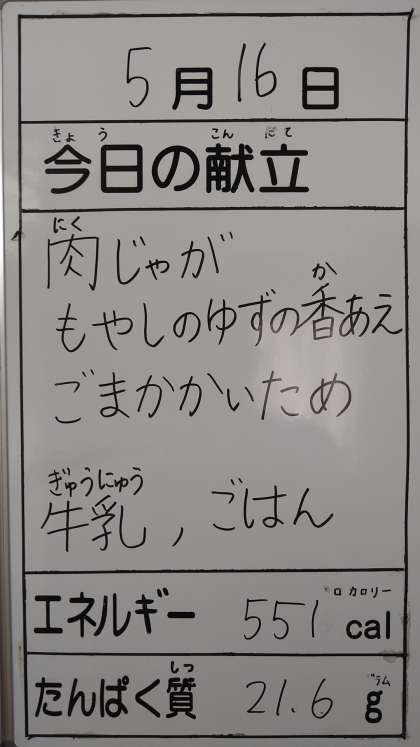 5月16日
きょう こん だて
今日の献立
にく
肉じゃが
か
もやしのゆずの香あえ
ごまかかいため
ぎゅうにゅう
牛乳, ごはん
ロカロリー
エネルギー 551 cal
しつ グラム
たんぱく質 21.6 g